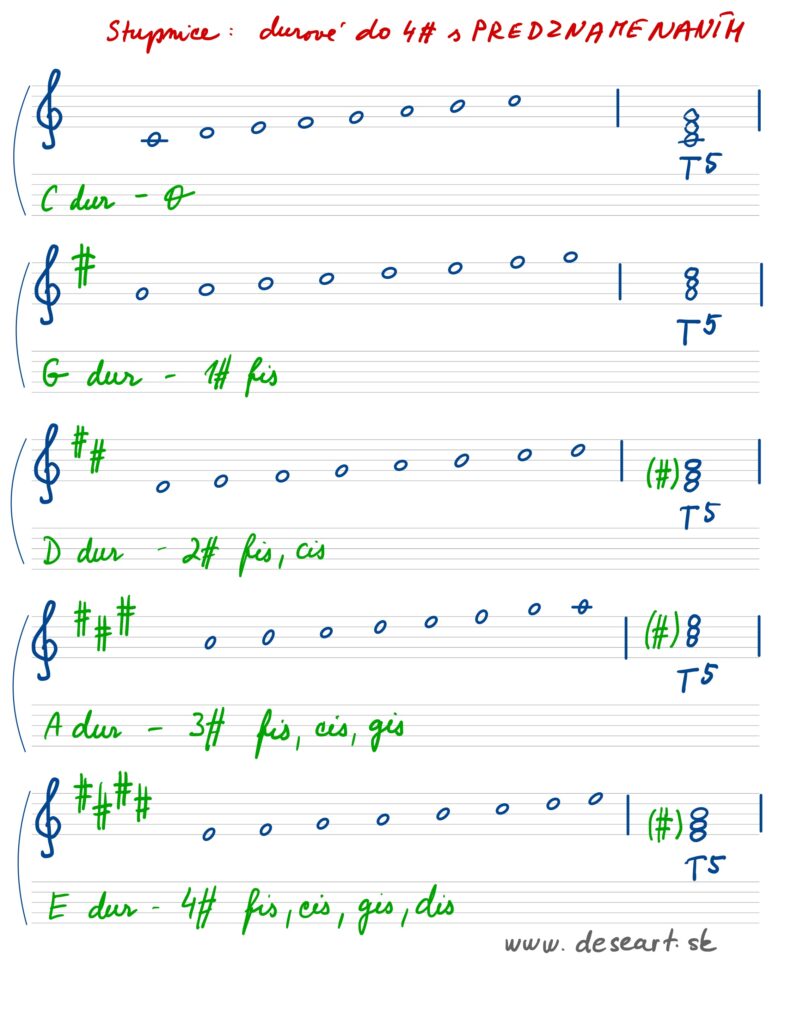 Stupnice: durové do 4# s PREDZNAMENANÍM
T5
C dur - 0
T5
G dur - 1# fis
(#)
T5
D dur - 2# fis, cis
(#)
T5
A dur - 3# fis, cis, gis
(#)
T5
E dur - 4# fis, cis, gis, dis
www.deseart.sk